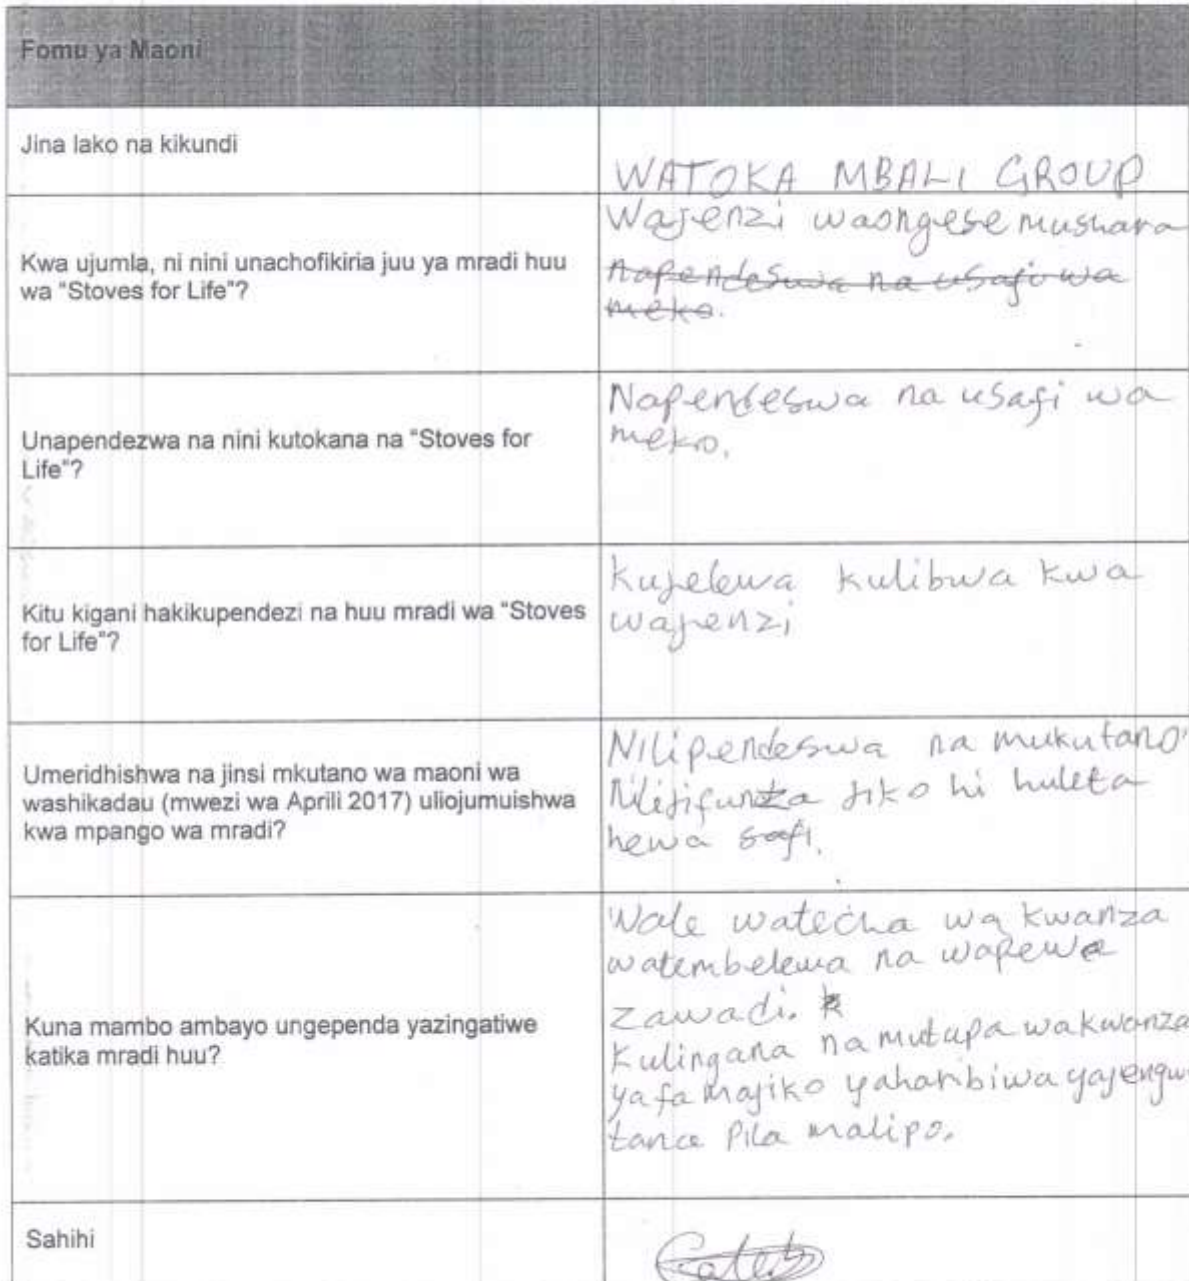 Fomu ya Maoni
Jina lako na kikundi
WATOKA MBALI GROUP
Kwa ujumla, ni nini unachofikiria juu ya mradi huu
wa "Stoves for Life"?
Wajenzi waongese mushara
napendeswa na usafi wa
meko.
Unapendezwa na nini kutokana na "Stoves for
Life"?
Napendeswa na usafi wa
meko.
Kitu kigani hakikupendezi na huu mradi wa "Stoves
for Life"?
Kujelewa kulibwa kwa
wajenzi
Umeridhishwa na jinsi mkutano wa maoni wa
washikadau (mwezi wa Aprili 2017) uliojumuishwa
kwa mpango wa mradi?
Nilipendeswa na mukutano
Nilijifunza jiko hi huleta
hewa safi.
Kuna mambo ambayo ungependa yazingatiwe
katika mradi huu?
Wale watecha wa kwanza
watembelewa na wapewe
zawadi.
Kulingana na mutupa wakwanza
majiko yaharibiwa
malipo.
Sahihi